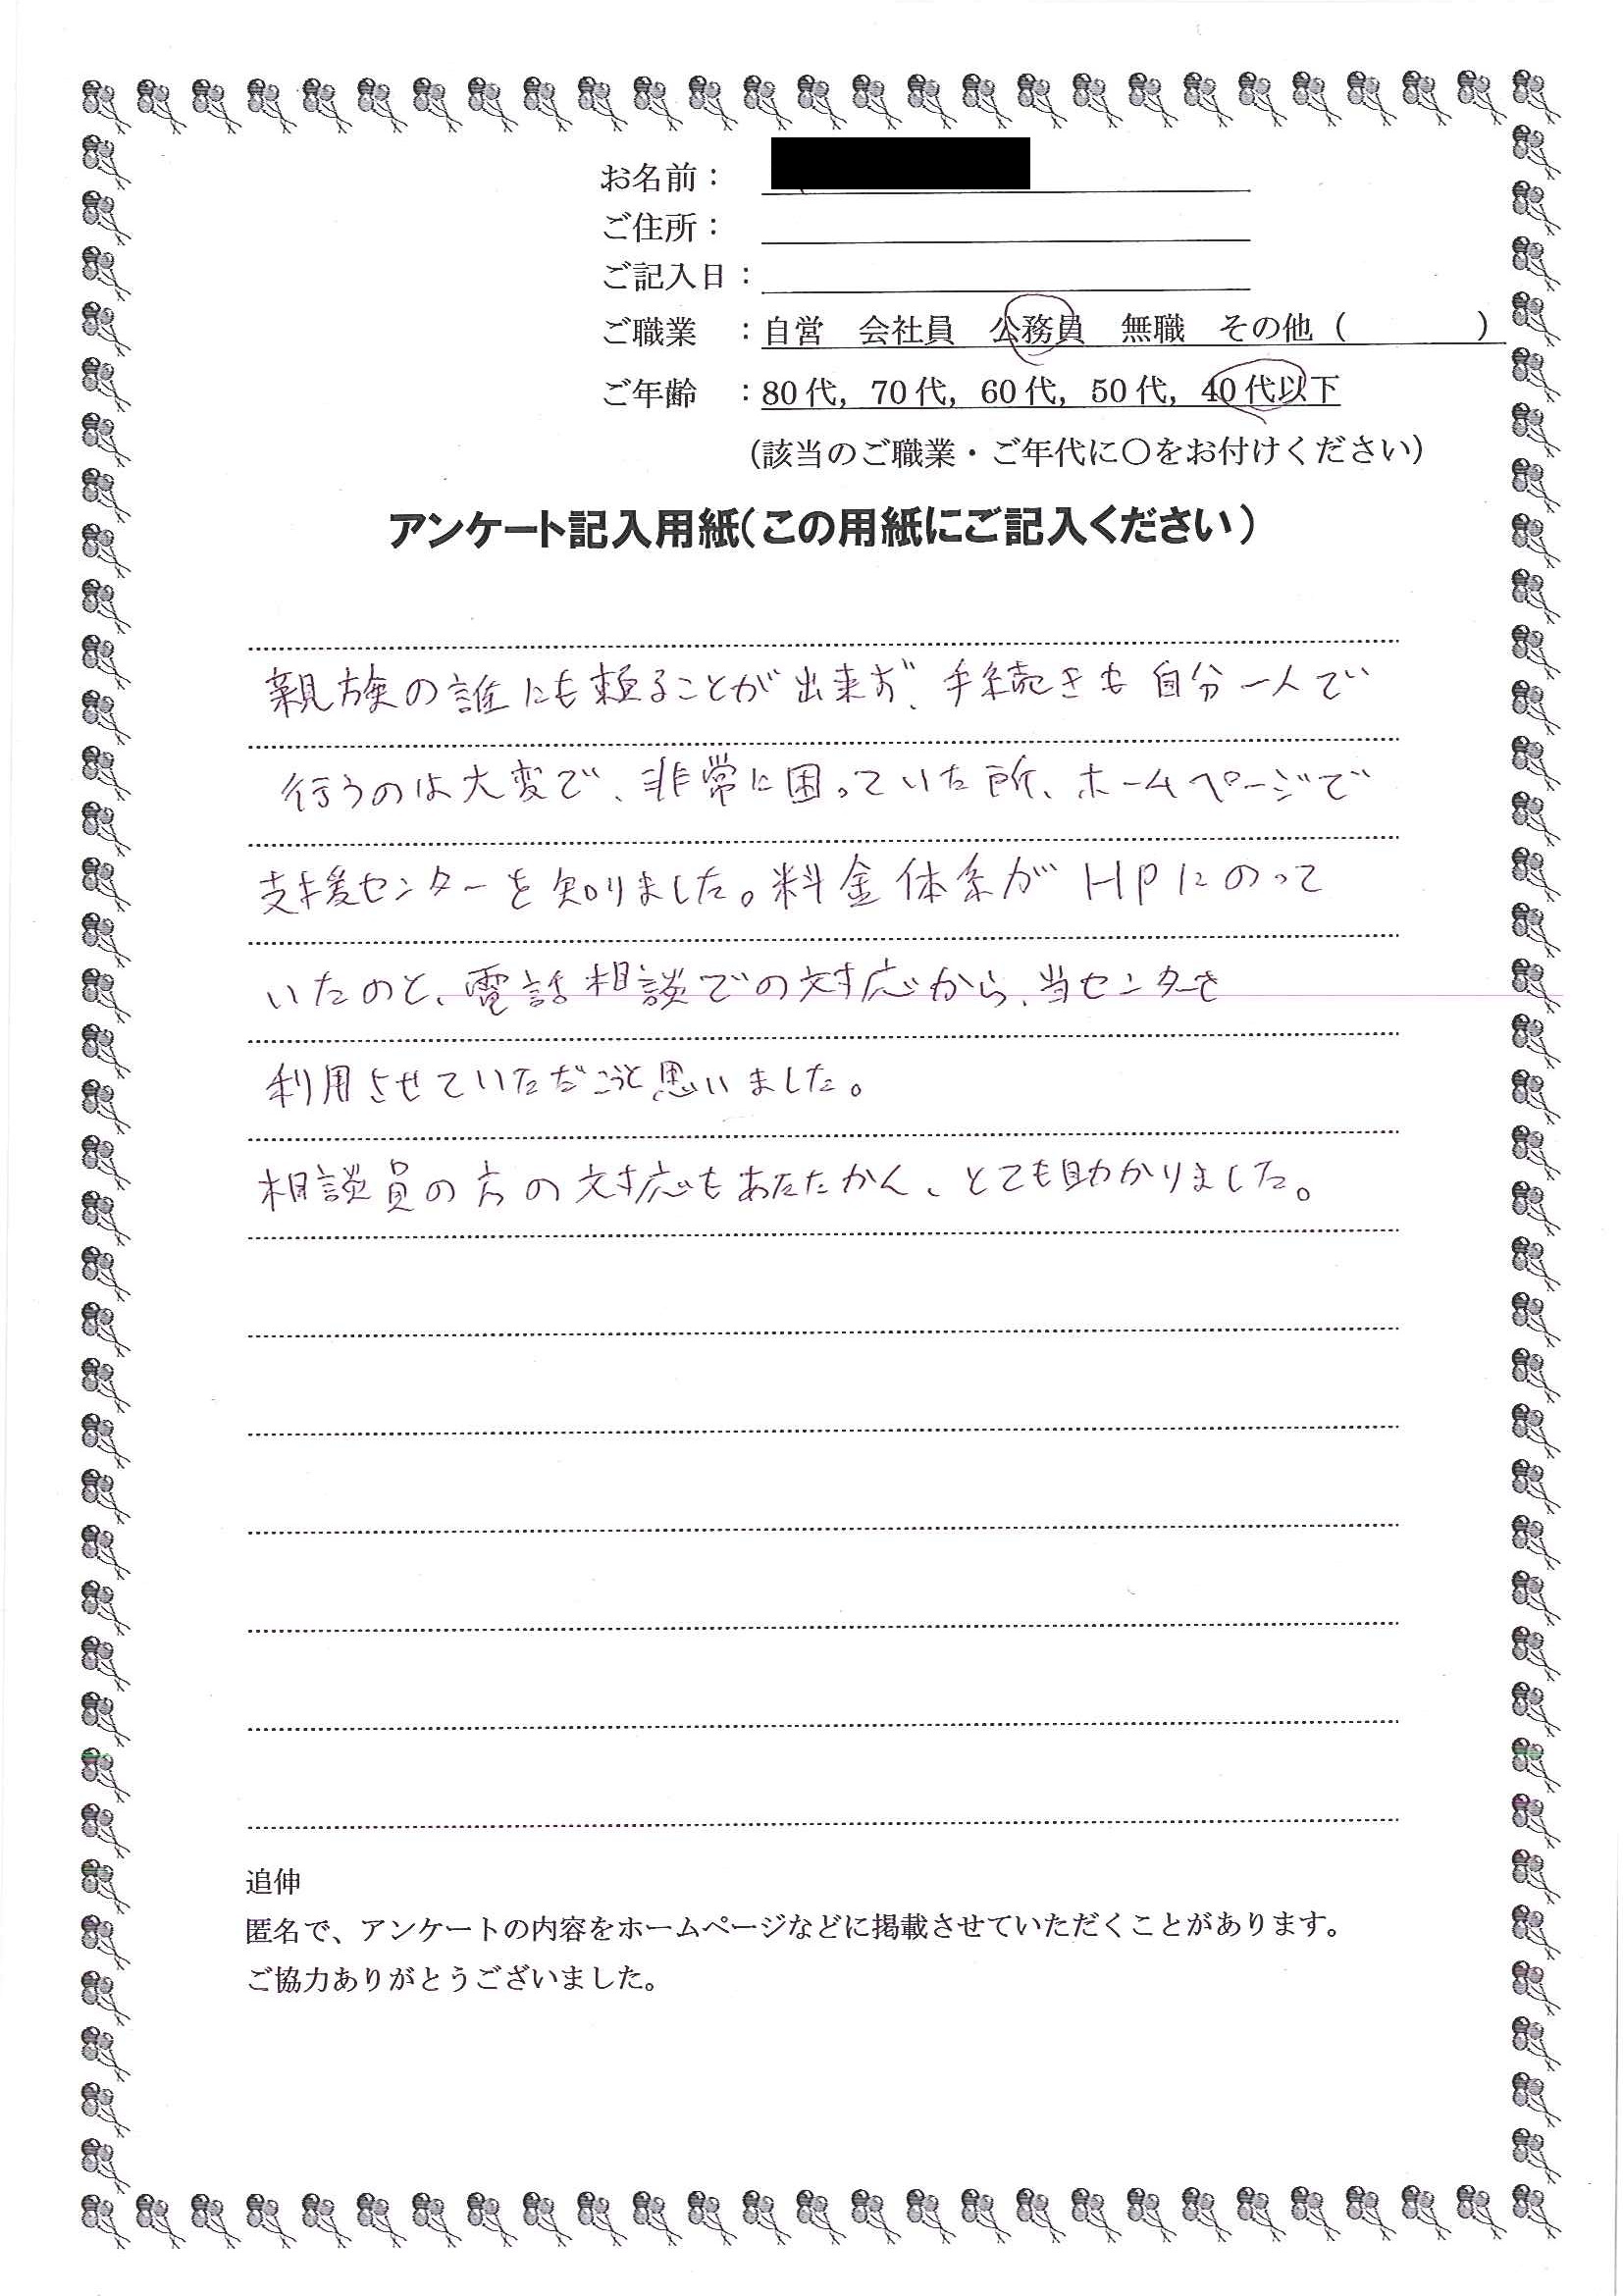 お名前：
ご住所：
ご記入日：
ご職業　：自営　会社員　公務員　無職　その他（　　　　）
ご年齢　：80代，70代，60代，50代，40代以下
（該当のご職業・ご年代に〇をお付けください）
アンケート記入用紙（この用紙にご記入ください）
親族の誰にも頼ることが出来ず、手続きも自分一人で
行うのは大変で、非常に困っていた所、ホームページで
支援センターを知りました。料金体系がHPにのって
いたのと、電話相談での対応から、当センターを
利用させていただこうと思いました。
相談員の方の対応もあたたかく、とても助かりました。
追伸
匿名で、アンケートの内容をホームページなどに掲載させていただくことがあります。
ご協力ありがとうございました。